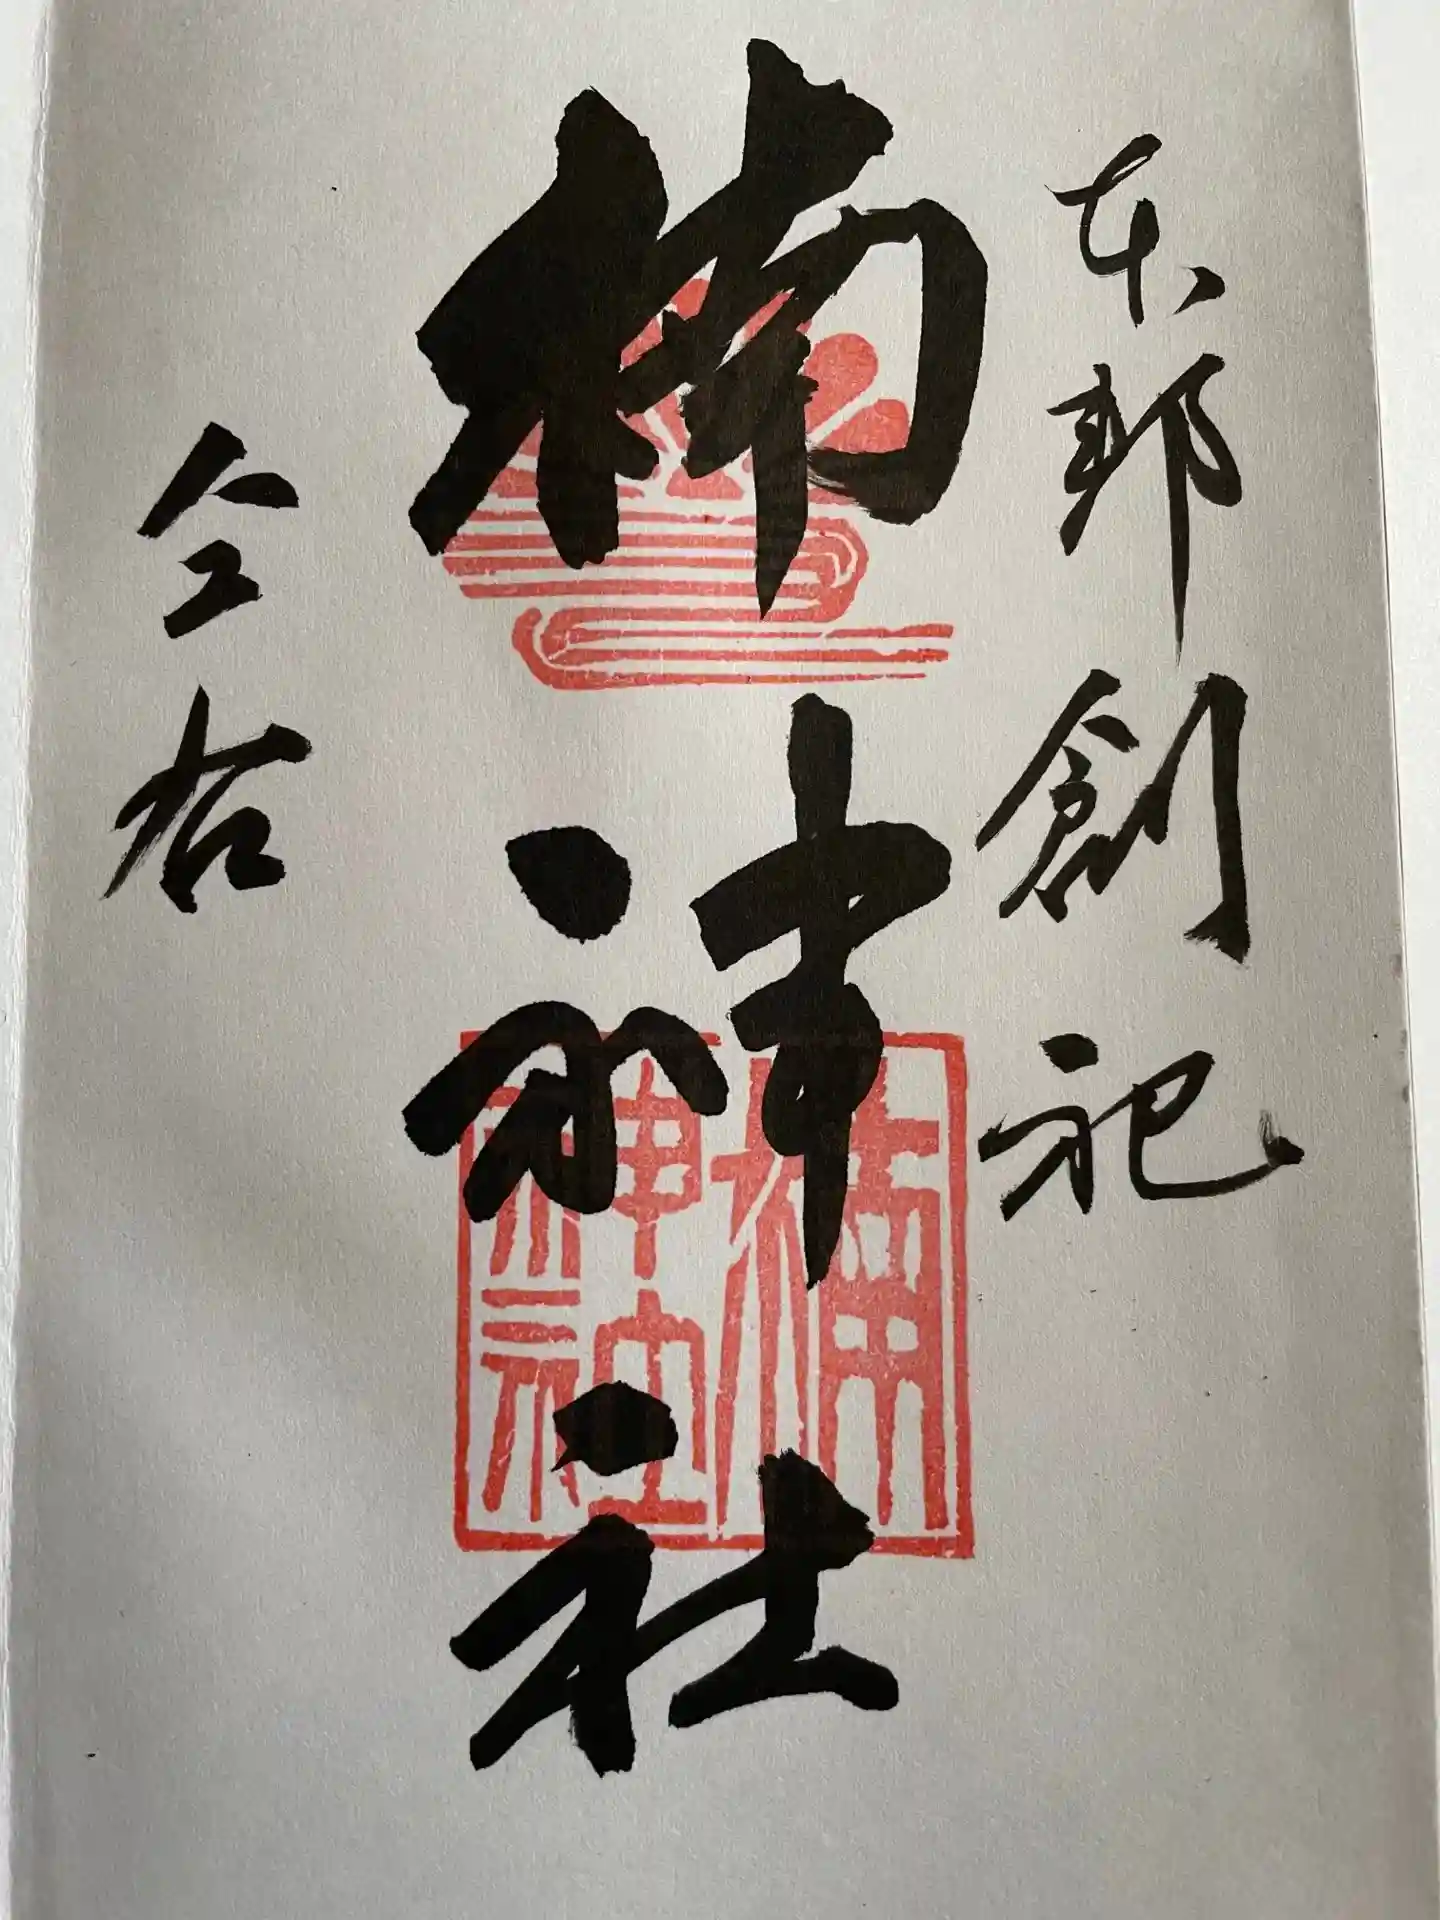 本邦創祀
楠神社
仝右
楠
神社